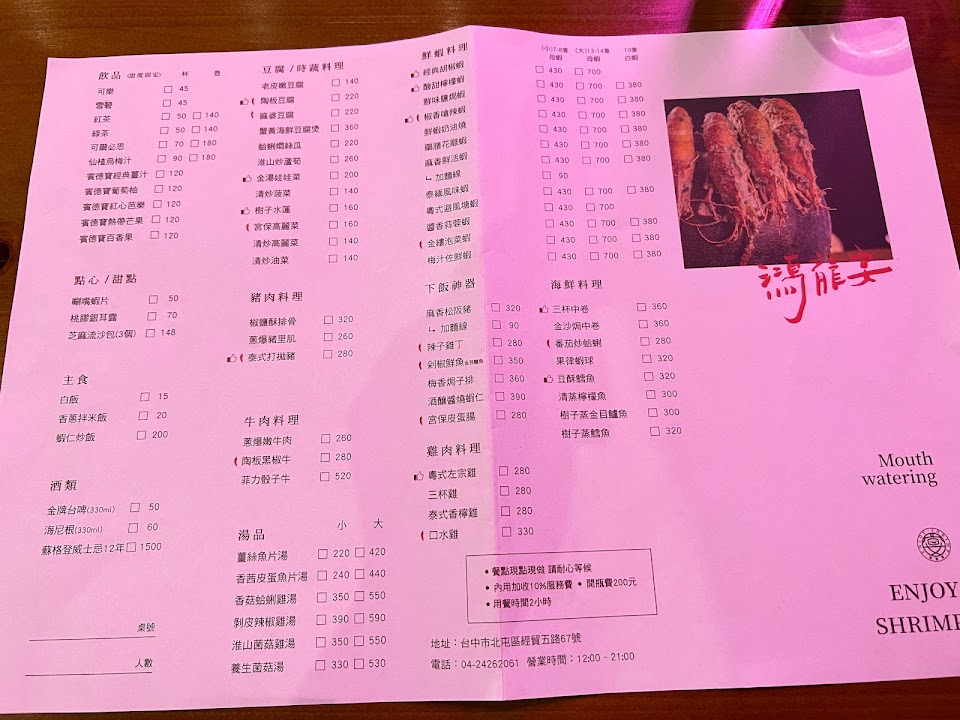 飲品 (甜度固定) 杯 壺
可樂 45
雪碧 45
紅茶 50 140
綠茶 50 140
可爾必思 70 180
仙楂烏梅汁 90 180
賓德寶經典薑汁 120
賓德寶葡萄柚 120
賓德寶紅心芭樂 120
賓德寶熱帶芒果 120
賓德寶百香果 120
點心/甜點
唰嘴蝦片 50
桃膠銀耳露 70
芝麻流沙包(3個) 148
主食
白飯 15
香蔥拌米飯 20
蝦仁炒飯 200
酒類
金牌台啤(330ml) 50
海尼根(330ml) 60
蘇格登威士忌12年 1500
桌號
人數
豆腐/時蔬料理
老皮嫩豆腐 140
陶板豆腐 220
麻婆豆腐 220
蟹黃海鮮豆腐煲 360
蛤蜊燜絲瓜 220
淮山炒蘆筍 260
金湯娃娃菜 200
清炒菠菜 140
樹子水蓮 160
宮保高麗菜 160
清炒高麗菜 140
清炒油菜 140
豬肉料理
椒鹽酥排骨 320
蔥爆豬里肌 260
泰式打拋豬 280
牛肉料理
蔥爆嫩牛肉 260
陶板黑椒牛 280
菲力骰子牛 520
湯品 小 大
薑絲魚片湯 220 420
香茜皮蛋魚片湯 240 440
香菇蛤蜊雞湯 350 550
剝皮辣椒雞湯 390 590
淮山菌菇雞湯 350 550
養生菌菇湯 330 530
鮮蝦料理 (小)7-8隻 母蝦 (大)13-14隻 母蝦 10隻 白蝦
經典胡椒蝦 430 700
酸甜檸檬蝦 430 700 380
鮮味鹽焗蝦 430 700 380
椒香嗆辣蝦 430 700 380
鮮蝦奶油燒 430 700 380
藥膳花雕蝦 430 700 380
麻香鮮活蝦 430 700 380
加麵線 90
泰緬風味蝦 430 700 380
粵式避風塘蝦 430 700
醬香蒜蓉蝦 430 700 380
金縷泡菜蝦 430 700 380
梅汁佐鮮蝦 430 700 380
下飯神器
麻香松阪豬 320
加麵線 90
辣子雞丁 280
剁椒鮮魚 350
梅香焗子排 360
酒釀醬燒蝦仁 390
宮保皮蛋腸 280
雞肉料理
粵式左宗雞 280
三杯雞 280
泰式香檸雞 280
口水雞 330
海鮮料理
三杯中卷 360
金沙焗中卷 360
番茄炒蛤蜊 280
果律蝦球 320
豆酥鱈魚 320
清蒸檸檬魚 300
樹子蒸金目鱸魚 300
樹子蒸鱈魚 320
• 餐點現點現做 請耐心等候
• 內用加收10%服務費 • 開瓶費200元
• 用餐時間2小時
地址：台中市北屯區經貿五路67號
電話：04-24262061 營業時間：12:00 - 21:00
鴻龍宴
Mouth
watering
ENJOY
SHRIMP